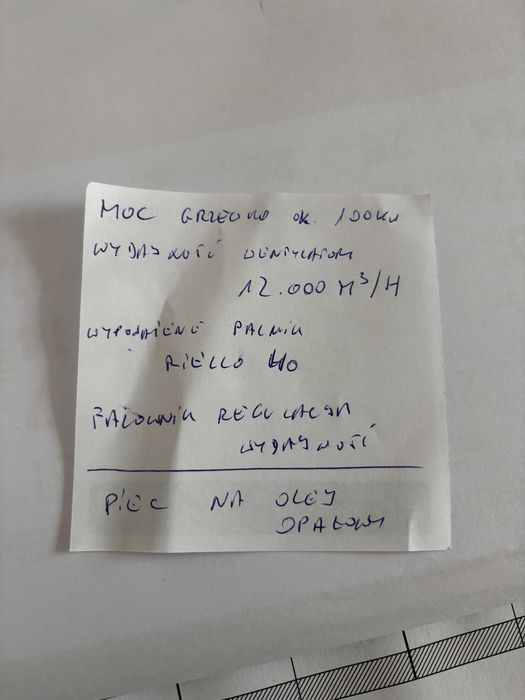 MOC GRZEWNO OK. 100KW
WYDAJNOŚĆ WENTYLATORA
12.000 M³/H
WYPOSAŻENIE PALNIK
RIELLO 40
FALOWNIK REGULACJA
WYDAJNOŚĆ
PIEC NA OLEJ
OPAŁOWY